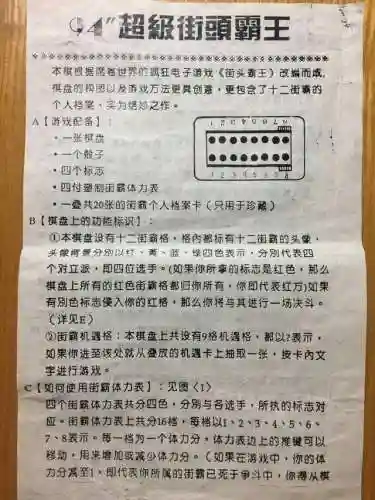 94"超級街頭霸王
本棋根据席卷世界的疯狂电子游戏《街头霸王》改编而成,
棋盘的构图以及游戏方法更具创意,更包含了十二街霸的
个人档案,实为绝妙之作。
A【游戏配备】:
·一张棋盘
·一个骰子
·四个标志
·四付塑制街霸体力表
·一叠共20张的街霸个人档案卡(只用于珍藏)
8 7 6 5 4 3 2 1
1 2 3 4 5 6 7 8
B【棋盘上的功能标识】:
①本棋盘设有十二街霸格,格内都标有十二街霸的头像,
头像背景分别以红、黄、蓝、绿四色表示,分别代表四
个对立派,即四位选手。(如果你所拿的标志是红色,那么
棋盘上所有的红色街霸格都归你所有,你即代表红方)如果
有别色标志侵入你的红格,那么你将与其进行一场决斗。
(详见E)
②街霸机遇格:本棋盘上共设有9格机遇格,都以?表示,
如果你进至该处就从叠放的机遇卡上抽取一张,按卡内文
字进行游戏。
C【如何使用街霸体力表】:见图〈1〉
四个街霸体力表共分四色,分别与各选手,所执的标志对
应。街霸体力表上共分16格,每格以1、2、3、4、5、6、
7、8表示。每一格为一个体力分,体力表边上的推键可以
移动,用来增加或减少体力分。(如果在游戏中,你的体
力分减至1,即代表你所属的街霸已死于争斗中,你得从棋